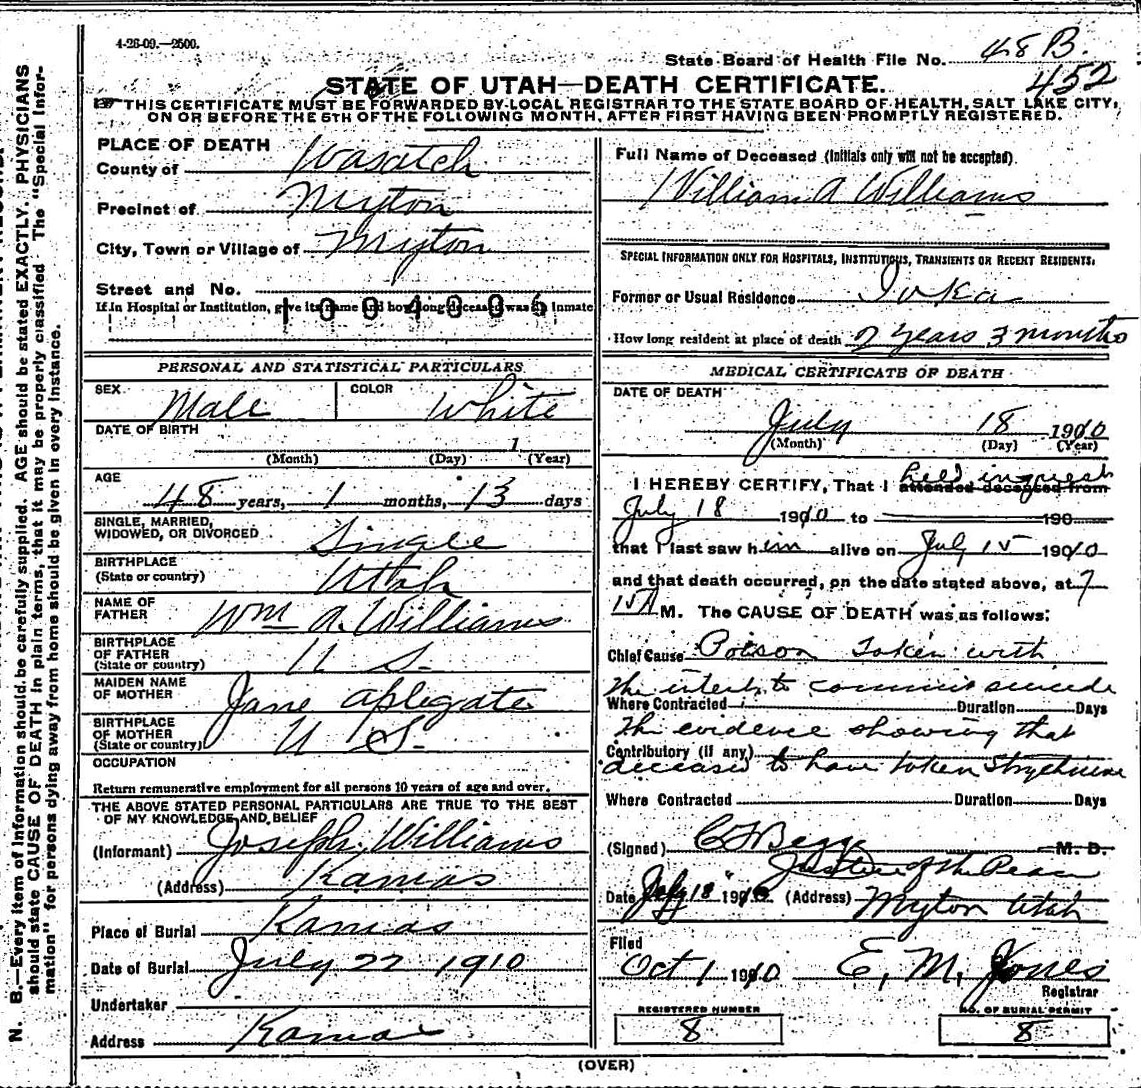 4-26-09.—2500.
State Board of Health File No. 48 B.
452
STATE OF UTAH—DEATH CERTIFICATE.
THIS CERTIFICATE MUST BE FORWARDED BY LOCAL REGISTRAR TO THE STATE BOARD OF HEALTH, SALT LAKE CITY,
ON OR BEFORE THE 5TH OF THE FOLLOWING MONTH, AFTER FIRST HAVING BEEN PROMPTLY REGISTERED.
PLACE OF DEATH
County of Wasatch
Precinct of Myton
City, Town or Village of Myton
Street and No.
If in Hospital or Institution, give its name and how long deceased was an inmate
1004006
PERSONAL AND STATISTICAL PARTICULARS
SEX Male COLOR White
DATE OF BIRTH
1
(Month) (Day) (Year)
AGE
48 years, 1 months, 13 days
SINGLE, MARRIED,
WIDOWED, OR DIVORCED Single
BIRTHPLACE
(State or country) Utah
NAME OF
FATHER Wm A. Williams
BIRTHPLACE
OF FATHER
(State or country) U S.
MAIDEN NAME
OF MOTHER Jane Aplegate
BIRTHPLACE
OF MOTHER
(State or country) U S.
OCCUPATION
Return remunerative employment for all persons 10 years of age and over.
THE ABOVE STATED PERSONAL PARTICULARS ARE TRUE TO THE BEST
OF MY KNOWLEDGE AND BELIEF
(Informant) Joseph Williams
(Address) Kamas
Place of Burial Kamas
Date of Burial July 22 1910
Undertaker
Address Kamas
Full Name of Deceased (Initials only will not be accepted).
William A Williams
SPECIAL INFORMATION ONLY FOR HOSPITALS, INSTITUTIONS, TRANSIENTS OR RECENT RESIDENTS.
Former or Usual Residence Ioka
How long resident at place of death 2 years 3 months
MEDICAL CERTIFICATE OF DEATH
DATE OF DEATH
July 18 1910
(Month) (Day) (Year)
held inquest
I HEREBY CERTIFY, That I attended deceased from
July 18 1910 to 190
that I last saw him alive on July 15 1910
and that death occurred, on the date stated above, at 7
15 A M. The CAUSE OF DEATH was as follows:
Chief Cause Poison Taken with
the intent to commit suicide
Where Contracted Duration Days
the evidence showing that
Contributory (if any)
deceased to have taken Strychnine
Where Contracted Duration Days
(Signed) C F Begg M. D.
Justice of the Peace
Date July 18 1910 (Address) Myton Utah
Filed
Oct 1 1910 E. M. Jones
Registrar
REGISTERED NUMBER
8
NO. OF BURIAL PERMIT
8
(OVER)
N. B.—Every item of information should be carefully supplied. AGE should be stated EXACTLY. PHYSICIANS
should state CAUSE OF DEATH in plain terms, that it may be properly classified The "Special Infor-
mation" for persons dying away from home should be given in every instance.